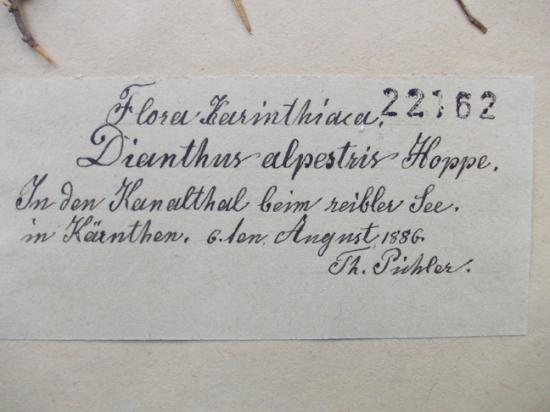 Flora Karinthiaca. 22162
Dianthus alpestris Hoppe.
In den Kanalthal beim reibler See.
in Kärnthen. 6.ten August 1886.
Th. Pichler.